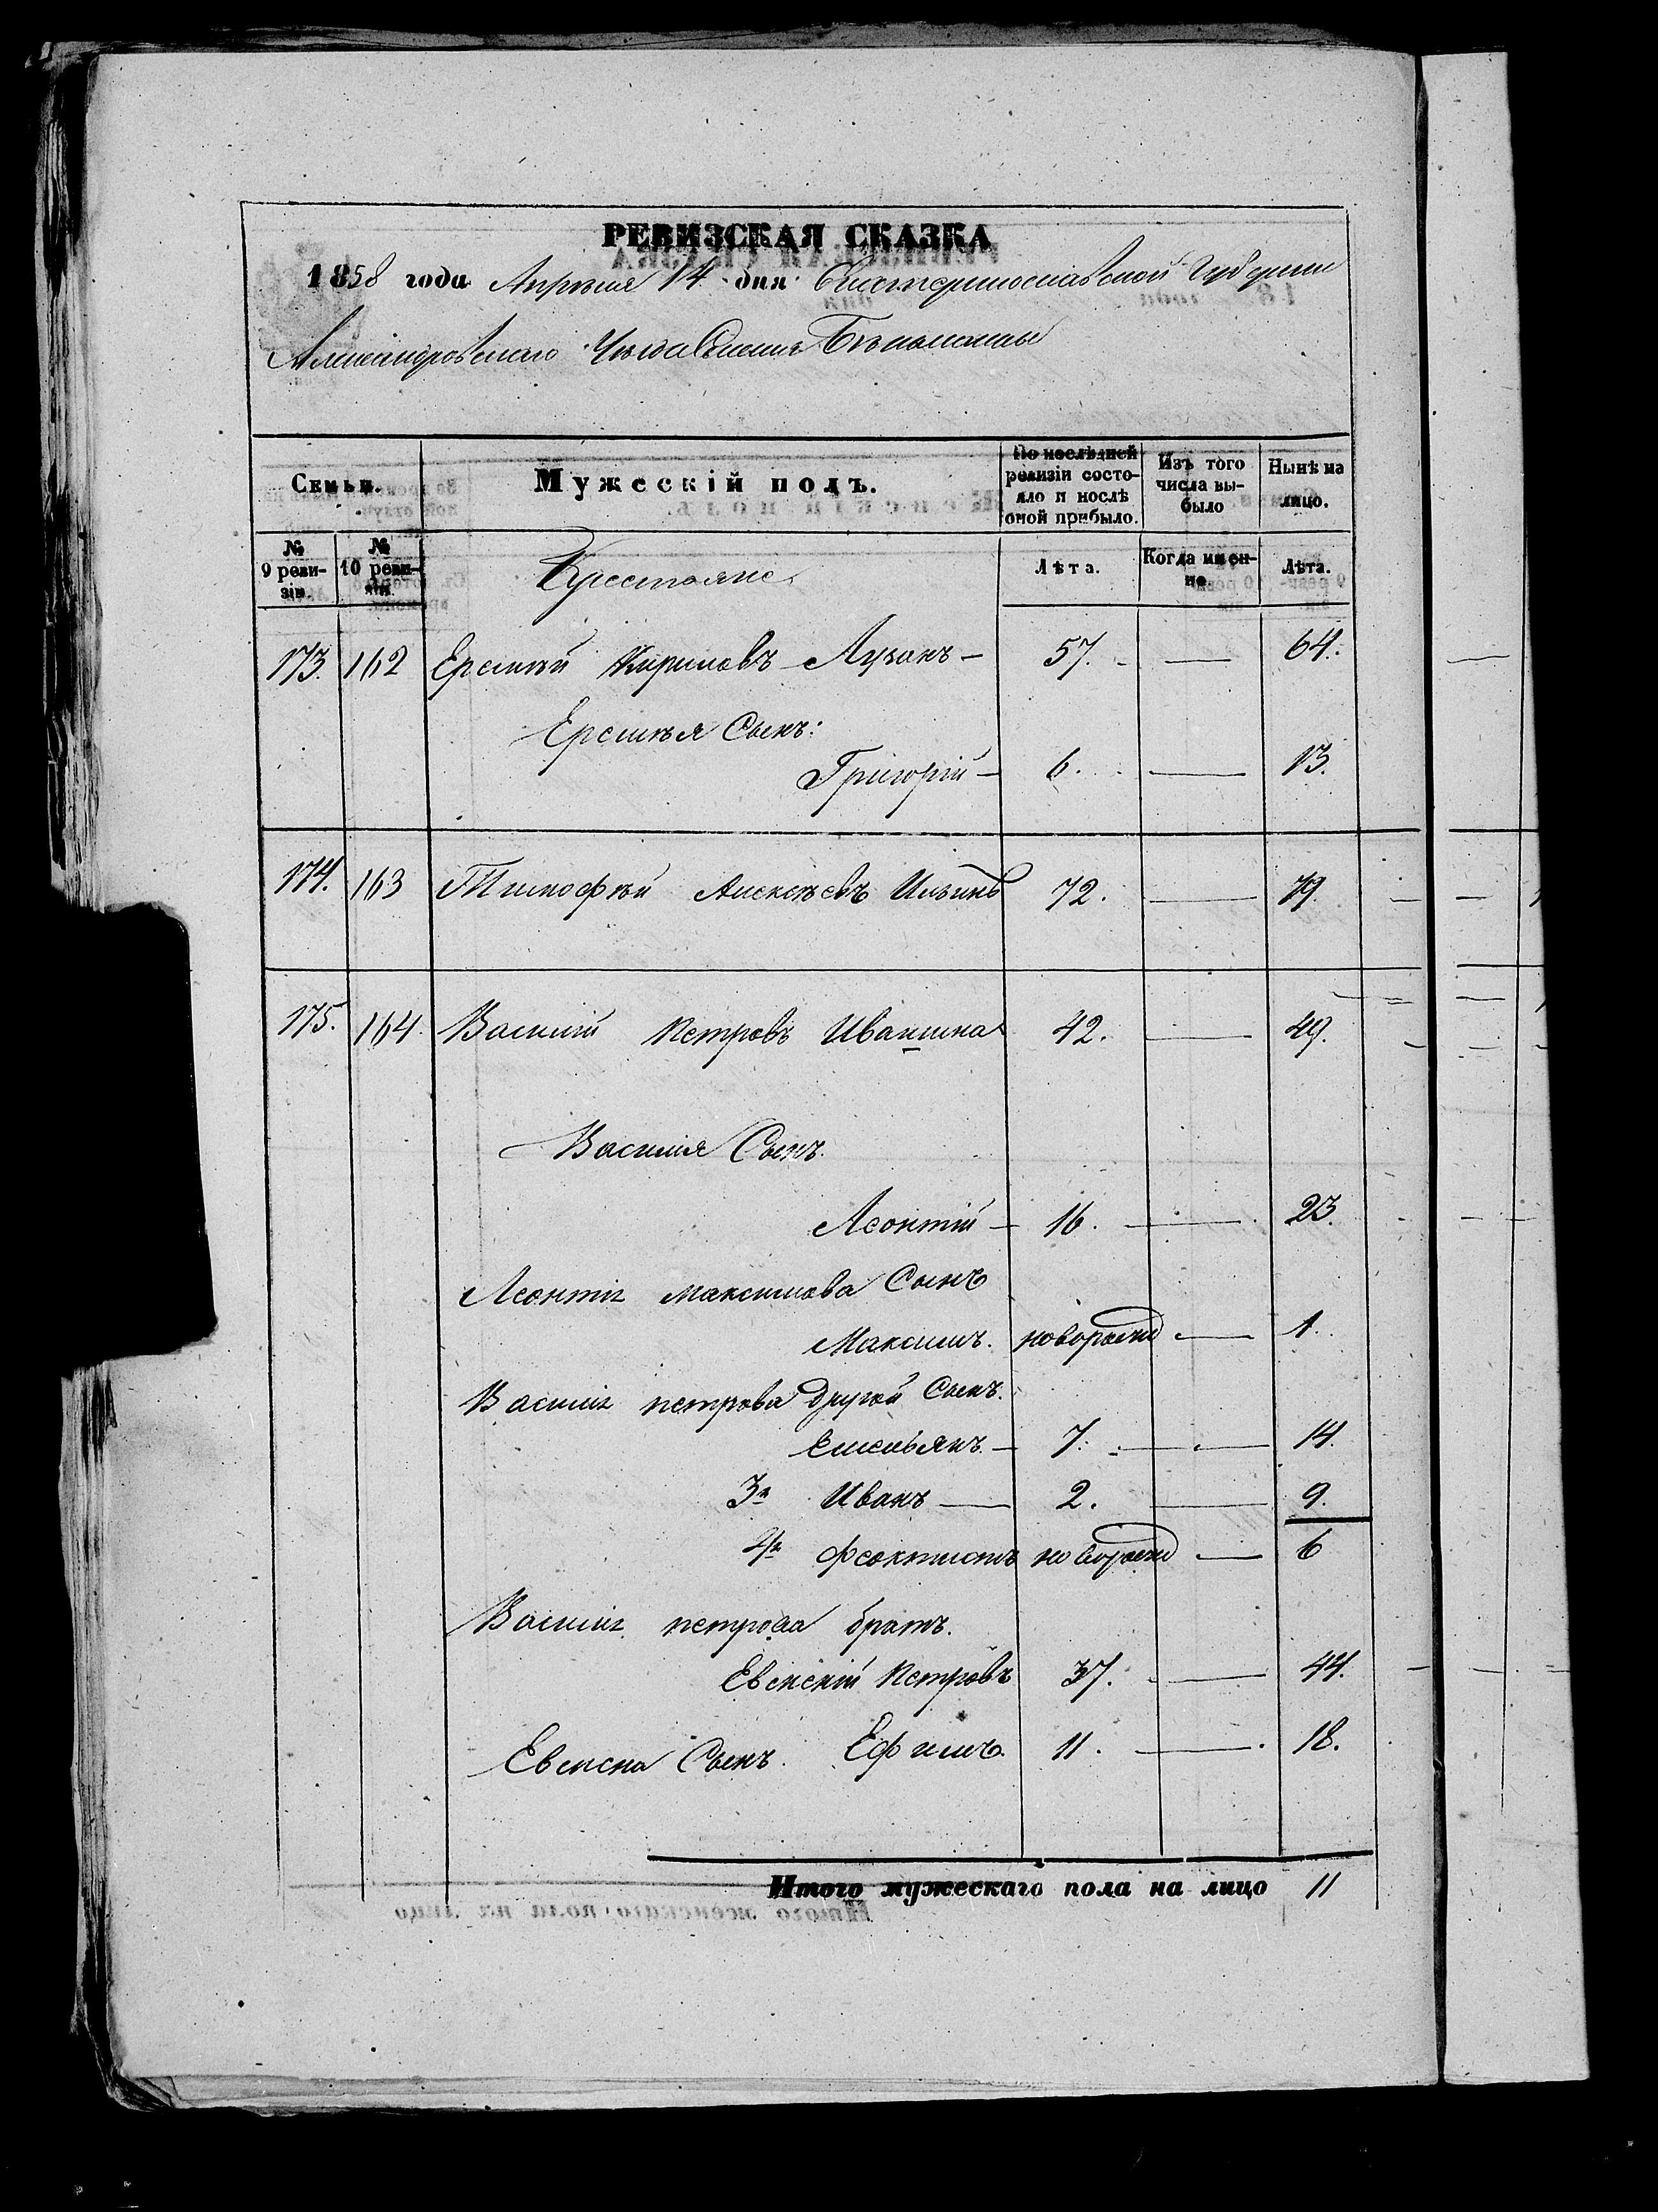 РЕВИЗСКАЯ СКАЗКА
1858 года Апреля 14 дня Екатеринославской Губернии
Александровского Уезда Селения Белоцерковки
Семьи. Мужескій полъ. По послѣдней ревизіи состояло и послѣ оной прибыло. Изъ того числа выбыло Нынѣ на лицо.
№ 9 ревизіи. № 10 ревизіи. Крестьяне Лѣта. Когда именно. Лѣта.
173. 162 Еремѣй Кириловъ Лузанъ — 57. — 64.
Еремѣя Сынъ:
Григорій — 6. — 13.
174. 163 Тимофѣй Алексѣевъ Ильинъ 72. — 79.
175. 164. Василій Петровъ Ивашина 42. — 49.
Василія Сынъ.
Леонтій — 16. — 23.
Леонтія Максимова Сынъ
Максимъ. новорожд — 1.
Василія петрова другой Сынъ.
Емельянъ — 7. — 14.
3й Иванъ — 2. — 9.
4й Феоктистъ новорожд — 6
Василія петрова братъ.
Евсевій Петровъ 37. — 44.
Евсена Сынъ. Ефимъ. 11. — 18.
Итого мужескаго пола на лицо 11